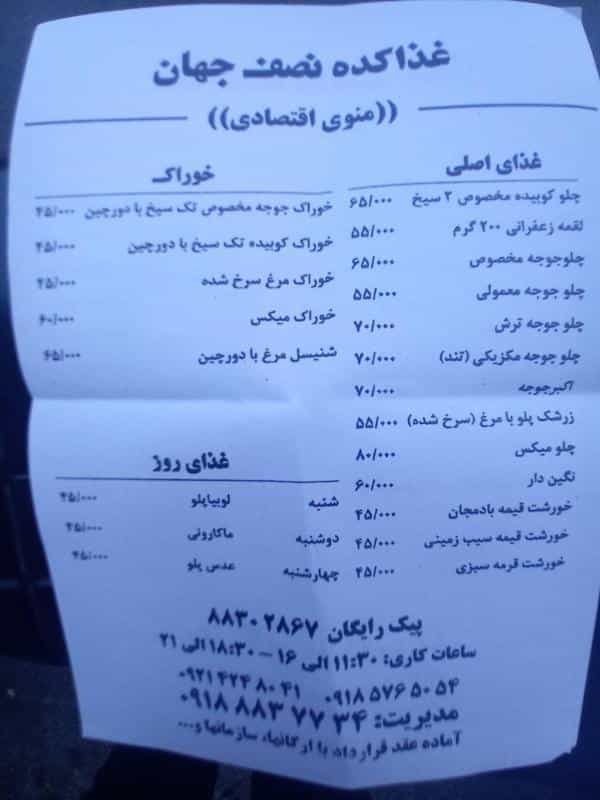 غذاکده نصف جهان
((منوی اقتصادی))
غذای اصلی
چلو کوبیده مخصوص ۲ سیخ ۶۵/۰۰۰
لقمه زعفرانی ۲۰۰ گرم ۵۵/۰۰۰
چلوجوجه مخصوص ۶۵/۰۰۰
چلو جوجه معمولی ۵۵/۰۰۰
چلو جوجه ترش ۷۰/۰۰۰
چلو جوجه مکزیکی (تند) ۷۰/۰۰۰
اکبرجوجه ۷۰/۰۰۰
زرشک پلو با مرغ (سرخ شده) ۵۵/۰۰۰
چلو میکس ۸۰/۰۰۰
نگین دار ۶۰/۰۰۰
خورشت قیمه بادمجان ۴۵/۰۰۰
خورشت قیمه سیب زمینی ۴۵/۰۰۰
خورشت قرمه سبزی ۴۵/۰۰۰
خوراک
خوراک جوجه مخصوص تک سیخ با دورچین ۴۵/۰۰۰
خوراک کوبیده تک سیخ با دورچین ۴۵/۰۰۰
خوراک مرغ سرخ شده ۴۵/۰۰۰
خوراک میکس ۶۰/۰۰۰
شنیسل مرغ با دورچین ۶۵/۰۰۰
غذای روز
شنبه لوبیاپلو ۴۵/۰۰۰
دوشنبه ماکارونی ۴۵/۰۰۰
چهارشنبه عدس پلو ۴۵/۰۰۰
پیک رایگان ۸۸۳۰۲۸۶۷
ساعات کاری: ۱۱:۳۰ الی ۱۶ - ۱۸:۳۰ الی ۲۱
۰۹۱۸ ۵۷۶ ۵۰ ۵۴ ۰۹۲۱ ۴۲۴ ۸۰ ۴۱
مدیریت: ۰۹۱۸ ۸۸۳ ۷۷ ۳۴
آماده عقد قرارداد با ارگانها، سازمانها و...